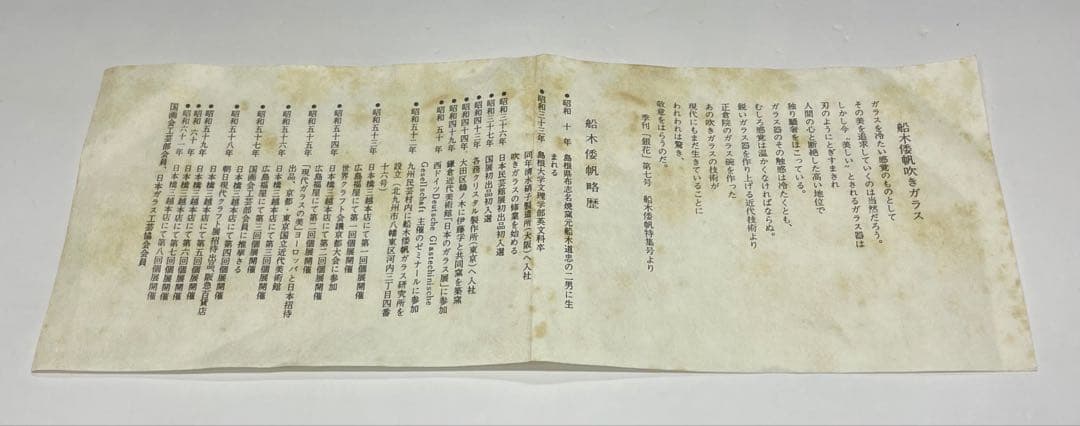 船木倭帆吹きガラス
ガラスを冷たい感覚のものとして
その美を追求していくのは当然だろう。
しかし今〝美しい〟とされるガラス器は
刃のようにとぎすまされ
人間の心と断絶した高い地位で
独り驕奢をほこっている。
ガラス器のその触感は冷たくとも、
むしろ感覚は温かくなければならぬ。
鋭いガラス器を作り上げる近代技術より
正倉院のガラス碗を作った
あの吹きガラスの技術が
現代にもまだ生きていることに
われわれは驚き、
敬意をはらうのだ。
季刊「銀花」第七号 船木倭帆特集号より
船木倭帆略歴
●昭和 十 年 島根県布志名焼窯元船木道忠の二男に生
まれる
●昭和三十三年 島根大学文理学部英文科卒
同年清水硝子製造所(大阪)へ入社
吹きガラスの修業を始める
●昭和三十六年 日本民芸館展初出品初入選
●昭和三十七年 国展初出品初入選
●昭和四十三年 各務クリスタル製作所(東京)へ入社
●昭和四十四年 大田区鵜ノ木に伊藤孚と共同窯を築窯
●昭和四十九年 鎌倉近代美術館「日本のガラス展」に参加
●昭和 五十 年 西ドイツDeutsche Glastechinische
Gesellschaft 主催のゼミナールに参加
●昭和五十二年 九州民芸村内に船木倭帆ガラス研究所を
設立(北九州市八幡東区河内二丁目四番
十六号)
●昭和五十三年 日本橋三越本店にて第一回個展開催
世界クラフト会議京都大会に参加
広島福屋にて第一回個展開催
●昭和五十四年 日本橋三越本店にて第二回個展開催
広島福屋にて第二回個展開催
●昭和五十五年 「現代ガラスの美」ヨーロッパと日本招待
出品、京都・東京国立近代美術館
●昭和五十六年 日本橋三越本店にて第三回個展開催
広島福屋にて第三回個展開催
●昭和五十七年 国画会工芸部会員に推挙さる
日本橋三越本店にて第四回個展開催
●昭和五十八年 朝日現代クラフト展招待出品、阪急百貨店
●昭和五十九年 日本橋三越本店にて第五回個展開催
●昭和 六十 年 日本橋三越本店にて第六回個展開催
●昭和六十一年 日本橋三越本店にて第七回個展開催
日本橋三越本店にて第八回個展開催
国画会工芸部会員、日本ガラス工芸協会会員